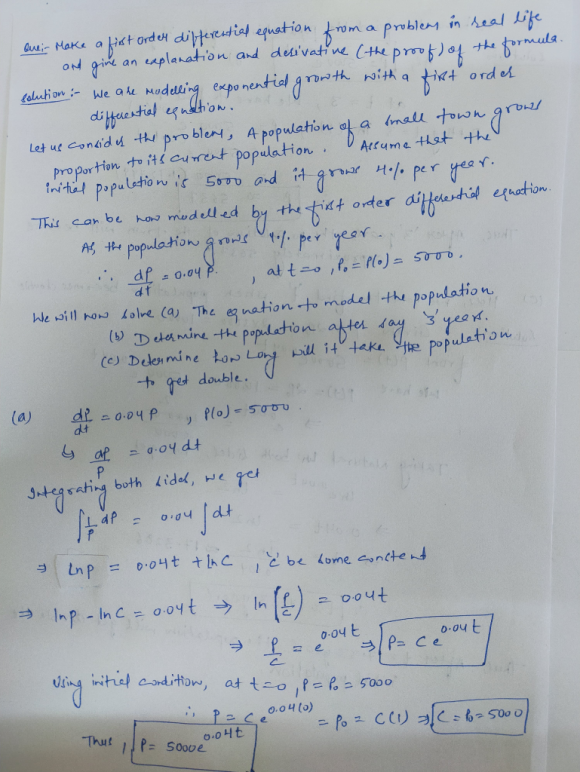 Que:- Make a first order differential equation from a problem in real life
and give an explanation and derivative (the proof) of the formula.
Solution :- We are modelling exponential growth with a first order
differential equation.
Let us consider the problem, A population of a small town grows
proportion to its current population. Assume that the
initial population is 5000 and it grows 4% per year.
This can be now modelled by the first order differential equation.
As, the population grows 4% per year.
∴ dP/dt = 0.04 P , at t=0, P₀ = P(0) = 5000.
We will now solve (a) The equation to model the population
(b) Determine the population after say '3' years.
(c) Determine how long will it take the population
to get double.
(a) dP/dt = 0.04 P , P(0) = 5000.
↳ dP/P = 0.04 dt
Integrating both sides, we get
∫ 1/P dP = 0.04 ∫ dt
⇒ ln P = 0.04t + ln C , 'c' be some constant
⇒ ln P - ln C = 0.04t ⇒ ln [P/C] = 0.04t
⇒ P/C = e^0.04t ⇒ P = C e^0.04t
Using initial condition, at t=0, P = P₀ = 5000
∴ P = C e^0.04(0) = P₀ = C(1) ⇒ C = P₀ = 5000
Thus, P = 5000e^0.04t